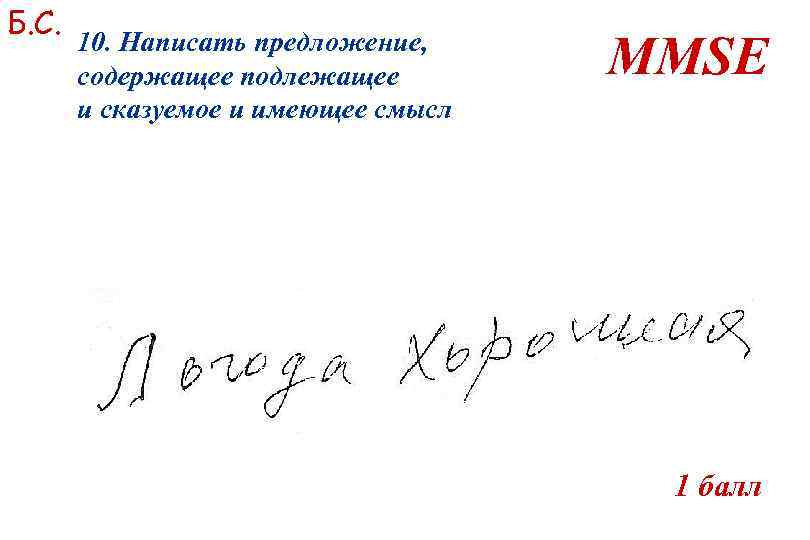 Б.С.
10. Написать предложение,
содержащее подлежащее
и сказуемое и имеющее смысл
MMSE
Погода Хорошая
1 балл